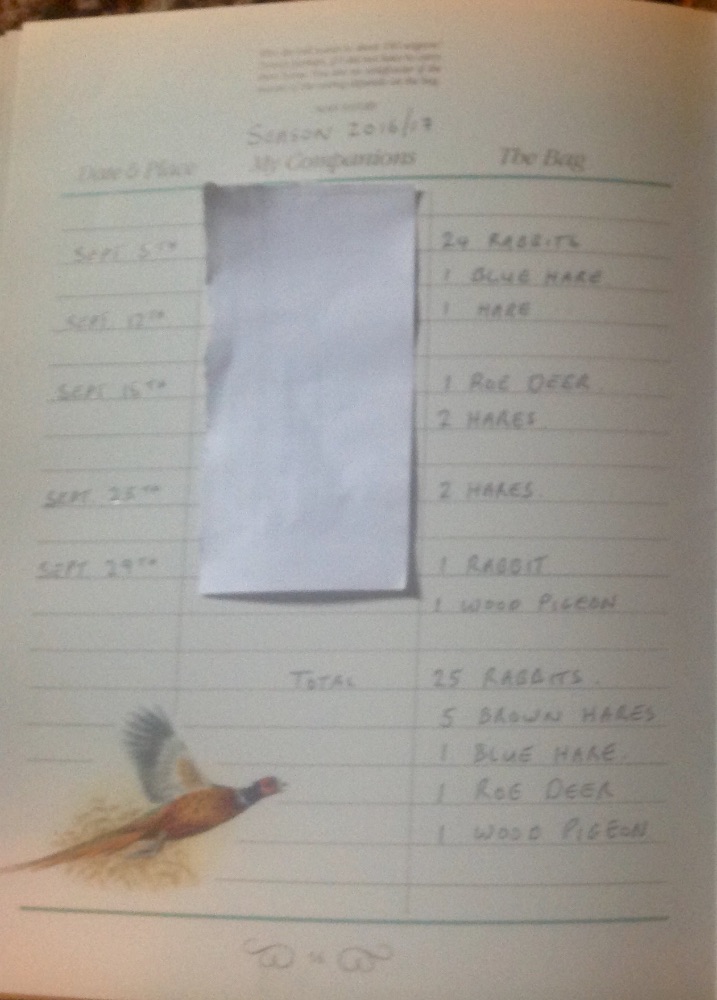 SEASON 2016/17
Date & Place My Companions The Bag
SEPT 5TH 24 RABBITS
1 BLUE HARE
SEPT. 12TH 1 HARE
SEPT 15TH 1 ROE DEER
2 HARES
SEPT. 2 HARES
SEPT. 29TH 1 RABBIT
1 WOOD PIGEON
TOTAL 25 RABBITS.
5 BROWN HARES
1 BLUE HARE.
1 ROE DEER
1 WOOD PIGEON